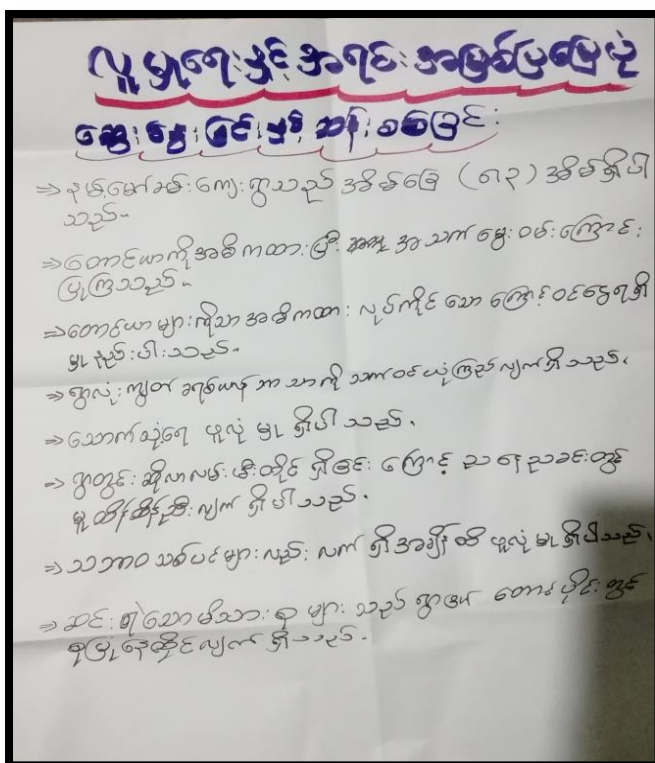 လူမှုရေးနှင့် အရင်းအမြစ်ပြမြေပုံ
ဆွေးနွေးခြင်းနှင့် ဆန်းစစ်ခြင်း
⇒ ကျေးရွာသည် အိမ်ခြေ (၈၃) အိမ်ရှိပါ
သည်။
⇒ တောင်ယာကိုအဓိကထားပြီး အသက်မွေးဝမ်းကြောင်း
ပြုကြသည်။
⇒ တောင်ယာများကိုသာအဓိကထား လုပ်ကိုင်သောကြောင့်ဝင်ငွေရရှိ
မှုနည်းပါးသည်။
⇒ ရွာလုံးကျွတ် ခရစ်ယာန်ဘာသာကို သက်ဝင်ယုံကြည်လျက်ရှိသည်။
⇒ သောက်သုံးရေ ဖူလုံမှု ရှိပါသည်။
⇒ ရွာတွင်း ဆိုလာလမ်းမီးတိုင် ရှိခြင်းကြောင့် ညနေညခင်းတွင်
မှုထိန်ထိန်ညီးလျက် ရှိပါသည်။
⇒ သဘာဝသစ်ပင်များလည်း လက်ရှိအချိန်ထိ ဖူလုံမှုရှိပါသည်။
⇒ ဆင်းရဲသောမိသားစုများသည် ရွာ၏ တောင်ပိုင်းတွင်
စုပြုံနေထိုင်လျက်ရှိသည်။